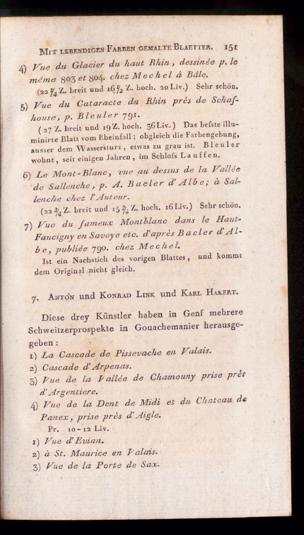 MIT LEBENDIGEN FARBEN GEMALTE BLAETTER. 151
4) Vue du Glacier du haut Rhin, dessinée p. le
même 803 et 804. chez Mechel à Bâle.
(22 ¼ Z. breit und 16 ½ Z. hoch. 20 Liv.) Sehr schön.
5) Vue du Cataracte du Rhin près de Schaf-
house, p. Bleuler 791.
(27 Z. breit und 19 Z. hoch. 36 Liv.) Das beste illu-
minirte Blatt vom Rheinfall; obgleich die Farbengebung,
ausser dem Wassersturz, etwas zu grau ist. Bleuler
wohnt, seit einigen Jahren, im Schloss Lauffen.
6) Le Mont-Blanc, vue au dessus de la Vallée
de Sallenche, p. A. Bacler d'Albe; à Sal-
lenche chez l'Auteur.
(22 ¾ Z. breit und 15 ¾ Z. hoch. 16 Liv.) Sehr schön.
7) Vue du fameux Montblanc dans le Haut-
Faucigny en Savoye etc. d'après Bacler d'Al-
be, publiée 790. chez Mechel.
Ist ein Nachstich des vorigen Blattes, und kommt
dem Original nicht gleich.
7. ANTON und KONRAD LINK und KARL HAKERT.
Diese drey Künstler haben in Genf mehrere
Schweitzerprospekte in Gouachemanier herausge-
geben:
1) La Cascade de Pissevache en Valais.
2) Cascade d'Arpenas.
3) Vue de la Vallée de Chamouny prise près
d'Argentiere.
4) Vue de la Dent de Midi et du Chateau de
Panex, prise près d'Aigle.
Pr. 10-12 Liv.
1) Vue d'Evian.
2) à St. Maurice en Valais.
3) Vue de la Porte de Sax.